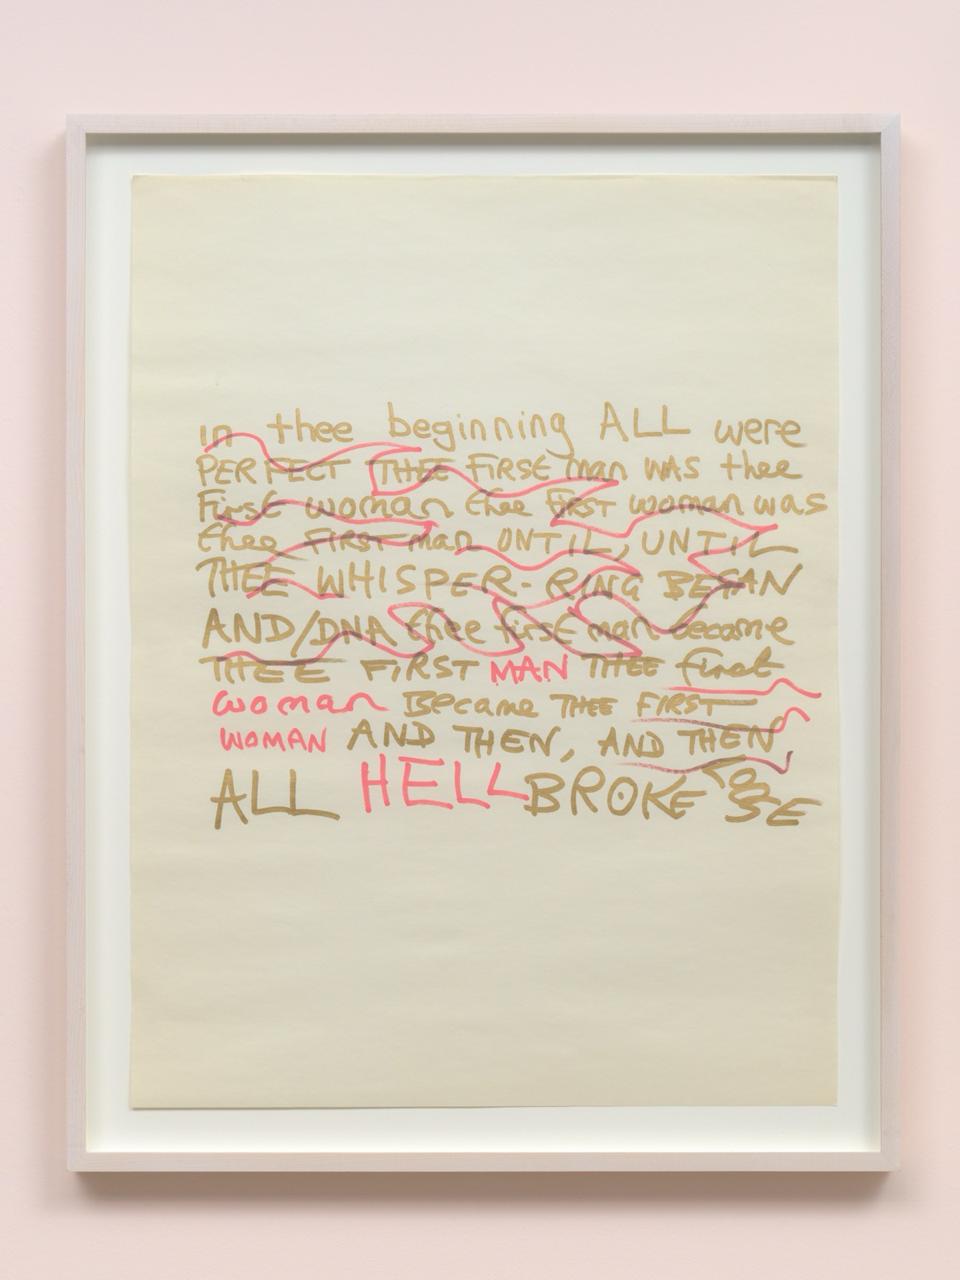 in thee beginning ALL were
PERFECT THEE FIRSE man WAS thee
First woman thee first woman was
thee FIRST man ONTIL, UNTIL
THEE WHISPER-RING BEGAN
AND/DNA thee first man became
THEE FIRST MAN THEE first
woman Became THEE FIRST
WOMAN AND THEN, AND THEN
ALL HELL BROKE LOOSE